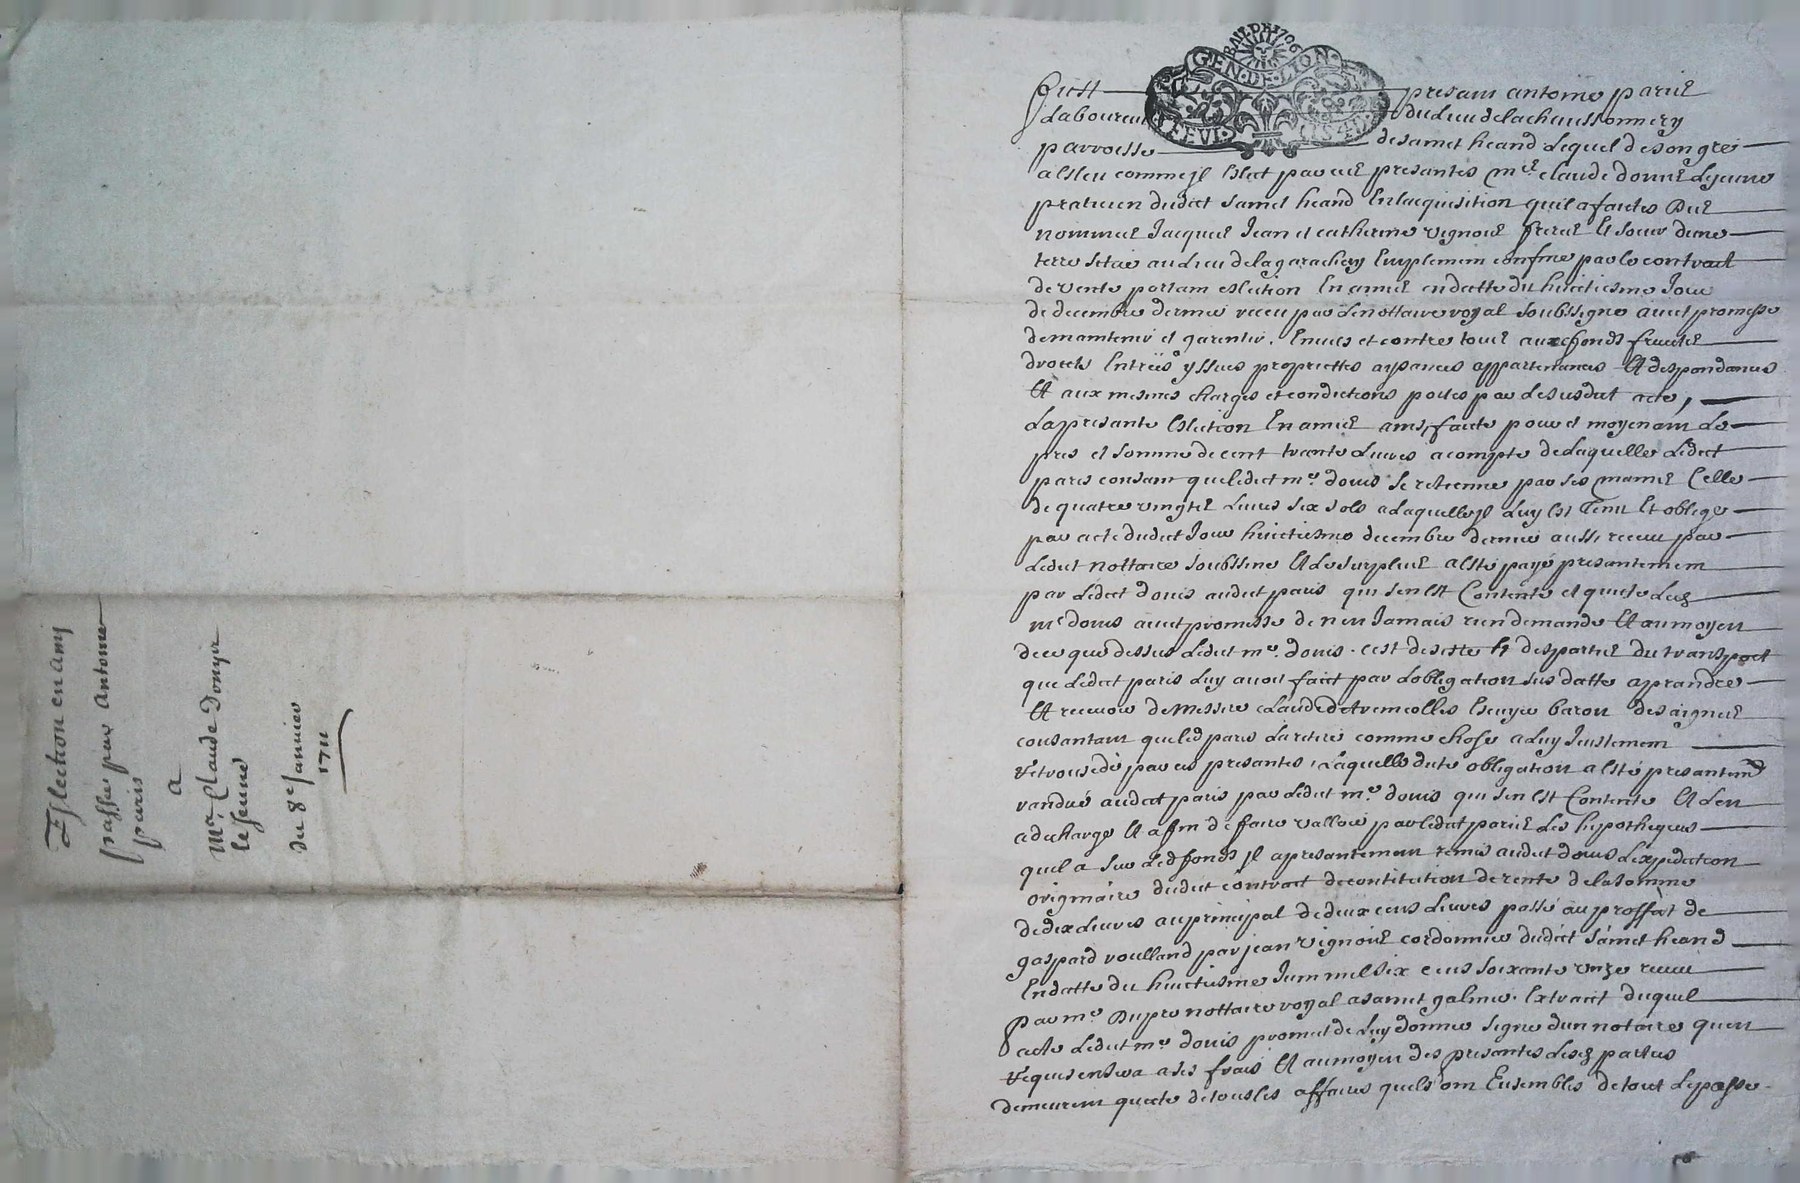 Eslection en amy
passée par Antoine
paris
a
Mre Claude Donyr
le Jeune
du 8e Janvier
1711
BAIL DE 1706
GEN · DE · LION ·
feust presant antoine paris
Laboureur du lieu de la chaussonnery
parroesse de sainct heand Lequel de son gré
a esleu comme jl eslect par ces presantes Me claude donis Lejeune
praticien dudict sainct heand En lacquisition quil a faictes des
nommes Jacques Jean et catherine vignois freres et soeur dune
terre scitue au Lieu de la garachery Emplement confine par le contract
de vente portant eslection En amis en datte du huictiesme Jour
de decembre dernier receu par Le nottaire royal soubssigne avec promesse
de maintenir et garentir. Envers et contre tous aux fonds fruicts
droicts Entrées yssues propriettes aysances appartenances Et despandances
Et aux mesmes charges et condictions portes par Le susdict acte,
La presante Eslection En amis ainsy faicte pour et moyenant Le
pris et somme de cent trante Livres a compte de Laquelle Ledict
paris consant que Ledict me. donis se retienne par ses mains Celle
de quatre vingts Livres six sols a Laquelle jl Luy est tenu Et oblige
par acte dudict Jour huictiesme decembre dernier aussi receu par
Ledict nottaire soubssine Et Le surplus a esté payé presantement
par Ledict donis audict paris qui sen est Contenté et quicte Led
me donis avec promesse de nen Jamais rien demande Et au moyen
de ce que dessus Ledict me. donis. cest desiste et despartis du transport
que Ledict paris Luy avoit faict par Lobligation sus datte a prandre
Et recevoir de Messire Claude de tremeolles Escuyer baron
consantant que Led paris La retire comme chose a Luy Justement
retrocedé par ces presantes, Laquelle dicte obligation a esté presantemt
randue audict paris par Ledict me. donis qui sen est Contenté Et Len
a decharge Et afin de faire valloir par Ledict paris Les hypotheques
quil a sur Led fonds jl a presantement remis audict donis Lexpediction
originaire dudict contract de contitution de rente de la somme
de dix Livres au principal de deux cens Livres passé au proffict de
gaspard roulland par jean vignois cordonnier dudict sainct heand
En datte du huictiesme Juin mil six cens soixante onze receu
par me Dupre nottaire royal a sainct galmier. Extraict duquel
acte Ledict me. donis promect de Luy donner signe dun notaire quen
requis en sera a ses frais Et au moyen des presantes Lesd parties
demeurent quicte de tous les affaires quels ont Ensembles de tout Le passe